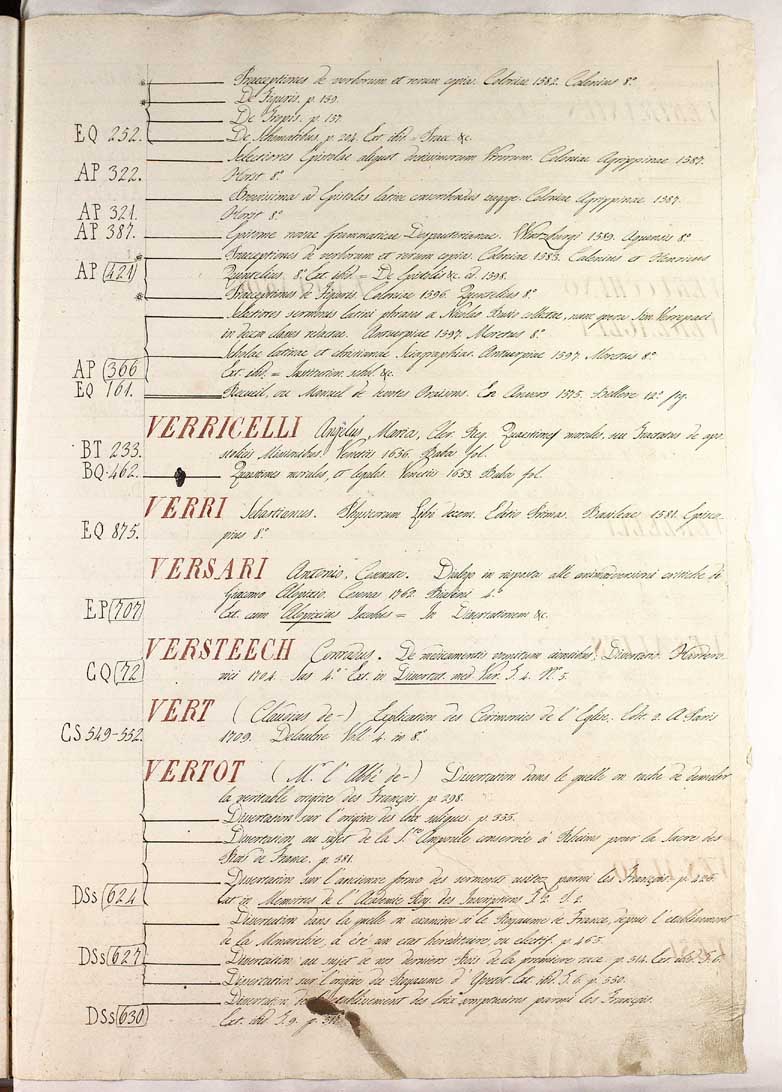 Praeceptiones de verborum et rerum copia. Coloniae 1582. Calenius 8.°
De Figuris. p. 159.
De Tropis. p. 137.
EQ 252. De Schematibus. p. 204. Ext. ibid. = Praec. &c.
Selectiores Epistolae aliquot doctissimorum Virorum. Coloniae Agrippinae 1587.
AP 322. Horst 8.°
Brevissima ad Epistolas latine conscribendas Coloniae Agrippinae 1587.
AP 321. Horst 8.°
AP 387. Epitome novae Grammaticae Despauterianae. Wirtzburgi 1589. Aquensis 8.°
Praeceptiones de verborum et rerum copia. Coloniae 1583. Calenius et Haeredes
AP 421 Quentelius. 8.° Ext. ibid. = De Epistolis &c. ed. 1598.
Praeceptiones de Figuris. Coloniae 1596. Quentelius 8.°
Selectiores sermonis latini phrases a Nicolao Buvis collectae, nunc opera Sim. Verrepaei
in decem classes relatae. Antverpiae 1597. Moretus 8.°
Scholae latinae et christianae Antverpiae 1597. Moretus 8.°
AP 366 Ext. ibid. = Institution. schol. &c.
EQ 161. Recueil, ou Manuel de toutes Oraisons. En Anvers 1575. Bellere 12.° fig.
VERRICELLI Angelus Maria, Cler. Reg. Quaestiones morales, seu Tractatus de apo-
BT 233. stolicis Missionibus. Venetiis 1656. Baba fol.
BQ. 462. Quaestiones morales, et legales. Venetiis 1653. Baba fol.
VERRI Sebastianus. Physicorum Libri decem. Editio Prima. Basileae 1581. Episco-
EQ 875. pius 8.°
VERSARI Antonio, Cesenate. Dialogo in risposta alle animadversioni critiche di
Giacomo Alopizio. Cesenae 1762. Biasini 4.°
EP 707 Ext. cum Alopixius Jacobus = In Dissertationem &c.
VERSTEECH Corradus. De medicamentis Dissertatio. Hardero-
CQ 72 vici 1704. Sas 4.° Ext. in Dissertat. med. Var. T. 4. N.° 5.
VERT (Claudius de-) Explication des Ceremonies de l'Eglise. Edit. 2. A Paris
CS 549-552. 1709. Delaulne Vol. 4. in 8.°
VERTOT (M.r l'Abbé de-) Dissertation dans le quelle on tache de demeler
la veritable origine des Français. p. 298.
Dissertation sur l'origine des loix saliques. p. 355.
Dissertation au sujet de la S.te Ampoulle conservée à Rheims pour la Sacre des
Rois de France. p. 381.
Dissertation sur l'ancienne forme des serments usitez parmi les Français. p. 425.
DSs 624 Ext. in Memoires de l'Academie Roy. des Inscriptions T. 2.
Dissertation dans la quelle on examine si le Royaume de France, depuis l'etablissement
de la Monarchie, a été un etat hereditaire ou electif. p. 465.
DSs 627 Dissertation au sujet de nos derniers Rois de la premiere race. p. 514. Ext. ibid. T. 6.
Dissertation sur l'origine du Royaume d'Yvetot. Ext. ibid. T. 6. p. 550.
Dissertation de l'etablissement des loix somptuaires parmi les Français.
DSs 630 Ext. ibid. T. 9. p.